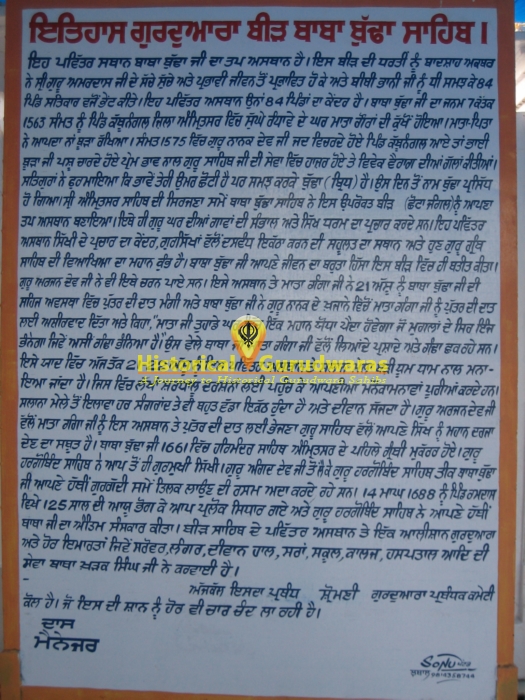 ਇਤਿਹਾਸ ਗੁਰਦੁਆਰਾ ਬੀੜ ਬਾਬਾ ਬੁੱਢਾ ਸਾਹਿਬ।
ਇਹ ਪਵਿੱਤਰ ਸਥਾਨ ਬਾਬਾ ਬੁੱਢਾ ਜੀ ਦਾ ਤਪ ਅਸਥਾਨ ਹੈ। ਇਸ ਬੀੜ ਦੀ ਧਰਤੀ ਨੂੰ ਬਾਦਸ਼ਾਹ ਅਕਬਰ
ਨੇ ਸ੍ਰੀ ਗੁਰੂ ਅਮਰਦਾਸ ਜੀ ਦੇ ਸੱਚੇ ਸੁੱਚੇ ਅਤੇ ਪ੍ਰਭਾਵੀ ਜੀਵਨ ਤੋਂ ਪ੍ਰਭਾਵਿਤ ਹੋ ਕੇ ਅਤੇ ਬੀਬੀ ਭਾਨੀ ਜੀ ਨੂੰ ਧੀ ਸਮਝ ਕੇ 84
ਪਿੰਡ ਸਤਿਕਾਰ ਵਜੋਂ ਭੇਟ ਕੀਤੇ। ਇਹ ਪਵਿੱਤਰ ਅਸਥਾਨ ਉਨਾਂ 84 ਪਿੰਡਾਂ ਦਾ ਕੇਂਦਰ ਹੈ। ਬਾਬਾ ਬੁੱਢਾ ਜੀ ਦਾ ਜਨਮ 7 ਕੱਤਕ
1563 ਸੰਮਤ ਨੂੰ ਪਿੰਡ ਕੱਥੂਨੰਗਲ ਜ਼ਿਲਾ ਅੰਮ੍ਰਿਤਸਰ ਵਿੱਚ ਸੁੱਘੇ ਰੰਧਾਵੇ ਦੇ ਘਰ ਮਾਤਾ ਗੌਰਾਂ ਦੀ ਕੁੱਖੋਂ ਹੋਇਆ। ਮਾਤਾ-ਪਿਤਾ
ਨੇ ਆਪਦਾ ਨਾਂ ਬੂੜਾ ਰੱਖਿਆ। ਸੰਮਤ 1575 ਵਿੱਚ ਗੁਰੂ ਨਾਨਕ ਦੇਵ ਜੀ ਜਦ ਵਿਚਰਦੇ ਹੋਏ ਪਿੰਡ ਕੱਥੂਨੰਗਲ ਆਏ ਤਾਂ ਭਾਈ
ਬੂੜਾ ਜੀ ਪਸ਼ੂ ਚਾਰਦੇ ਹੋਏ ਪ੍ਰੇਮ ਭਾਵ ਨਾਲ ਗੁਰੂ ਸਾਹਿਬ ਜੀ ਦੀ ਸੇਵਾ ਵਿੱਚ ਹਾਜ਼ਰ ਹੋਏ ਤੇ ਵਿਵੇਕ ਵੈਰਾਗ ਦੀਆਂ ਗੱਲਾਂ ਕੀਤੀਆਂ।
ਸਤਿਗੁਰਾਂ ਨੇ ਫੁਰਮਾਇਆ ਕਿ ਭਾਵੇਂ ਤੇਰੀ ਉਮਰ ਛੋਟੀ ਹੈ ਪਰ ਸਮਝ ਕਰਕੇ ਬੁੱਢਾ (ਬ੍ਰਿਧ) ਹੈਂ। ਉਸ ਦਿਨ ਤੋਂ ਨਾਮ ਬੁੱਢਾ ਪ੍ਰਸਿੱਧ
ਹੋ ਗਿਆ। ਸ੍ਰੀ ਅੰਮ੍ਰਿਤਸਰ ਸਾਹਿਬ ਦੀ ਸਿਰਜਣਾ ਸਮੇਂ ਬਾਬਾ ਬੁੱਢਾ ਸਾਹਿਬ ਨੇ ਇਸ ਉਪਰੋਕਤ ਬੀੜ (ਛੋਟਾ ਜੰਗਲ) ਨੂੰ ਆਪਣਾ
ਤਪ ਅਸਥਾਨ ਬਣਾਇਆ। ਇੱਥੇ ਹੀ ਗੁਰੂ ਘਰ ਦੀਆਂ ਗਾਵਾਂ ਦੀ ਸੰਭਾਲ ਅਤੇ ਸਿੱਖ ਧਰਮ ਦਾ ਪ੍ਰਚਾਰ ਕਰਦੇ ਸਨ। ਇਹ ਪਵਿੱਤਰ
ਅਸਥਾਨ ਸਿੱਖੀ ਦੇ ਪ੍ਰਚਾਰ ਦਾ ਕੇਂਦਰ, ਗੁਰਸਿੱਖਾਂ ਵੱਲੋਂ ਦਸਵੰਧ ਇਕੱਠਾ ਕਰਨ ਦੀ ਸਹੂਲਤ ਦਾ ਸਥਾਨ ਅਤੇ ਹੁਣ ਗੁਰੂ ਗ੍ਰੰਥ
ਸਾਹਿਬ ਦੀ ਵਿਆਖਿਆ ਦਾ ਮਹਾਨ ਕੁੰਭ ਹੈ। ਬਾਬਾ ਬੁੱਢਾ ਜੀ ਆਪਣੇ ਜੀਵਨ ਦਾ ਬਹੁਤਾ ਹਿੱਸਾ ਇਸ ਬੀੜ ਵਿੱਚ ਹੀ ਬਤੀਤ ਕੀਤਾ।
ਗੁਰੂ ਅਰਜਨ ਦੇਵ ਜੀ ਨੇ ਵੀ ਇਥੇ ਚਰਨ ਪਾਏ ਸਨ। ਇਸੇ ਅਸਥਾਨ ਤੇ ਮਾਤਾ ਗੰਗਾ ਜੀ ਨੇ 21 ਅੱਸੂ ਨੂੰ ਬਾਬਾ ਬੁੱਢਾ ਜੀ ਦੀ
ਸਹਿਜ ਅਵਸਥਾ ਵਿੱਚ ਪੁੱਤਰ ਦੀ ਦਾਤ ਮੰਗੀ ਅਤੇ ਬਾਬਾ ਬੁੱਢਾ ਜੀ ਨੇ ਗੁਰੂ ਨਾਨਕ ਦੇ ਖ਼ਜ਼ਾਨੇ ਵਿੱਚੋਂ ਮਾਤਾ ਗੰਗਾ ਜੀ ਨੂੰ ਪੁੱਤਰ ਦੀ ਦਾਤ
ਲਈ ਅਸ਼ੀਰਵਾਦ ਦਿੱਤਾ ਅਤੇ ਕਿਹਾ, "ਮਾਤਾ ਜੀ ਤੁਹਾਡੇ ਇੱਕ ਮਹਾਨ ਯੋਧਾ ਪੈਦਾ ਹੋਵੇਗਾ ਜੋ ਮੁਗਲਾਂ ਦੇ ਸਿਰ ਇੰਜ
ਭੰਨੇਗਾ ਜਿਵੇਂ ਅਸੀਂ ਗੰਢਾ ਭੰਨਿਆ ਹੈ"। ਉਸ ਵੇਲੇ ਬਾਬਾ ਗੰਗਾ ਜੀ ਵੱਲੋਂ ਲਿਆਂਦੇ ਪ੍ਰਸ਼ਾਦੇ ਅਤੇ ਗੰਢਾ ਛਕ ਰਹੇ ਸਨ।
ਇਸੇ ਯਾਦ ਵਿੱਚ ਅੱਜ ਤੱਕ ਧੂਮ ਧਾਮ ਨਾਲ ਮਨਾ-
Historical Gurudwaras
ਇਆ ਜਾਂਦਾ ਹੈ। ਜਿਸ ਵਿੱਚ ਲੱਖਾਂ ਸ਼ਰਧਾਲੂ ਦਰਸ਼ਨਾਂ ਲਈ ਪਹੁੰਚ ਕੇ ਆਪਣੀਆਂ ਮਨੋਕਾਮਨਾਵਾਂ ਪੂਰੀਆਂ ਕਰਦੇ ਹਨ।
A Journey to Historical Gurudwara Sahibs
ਸਲਾਨਾ ਮੇਲੇ ਤੋਂ ਇਲਾਵਾ ਹਰ ਸੰਗਰਾਂਦ ਤੇ ਵੀ ਬਹੁਤ ਵੱਡਾ ਇਕੱਠ ਹੁੰਦਾ ਹੈ ਅਤੇ ਦੀਵਾਨ ਸੱਜਦਾ ਹੈ। ਗੁਰੂ ਅਰਜਨ ਦੇਵ ਜੀ
ਵੱਲੋਂ ਮਾਤਾ ਗੰਗਾ ਜੀ ਨੂੰ ਇਸ ਅਸਥਾਨ ਤੇ ਪੁੱਤਰ ਦੀ ਦਾਤ ਲਈ ਭੇਜਣਾ ਗੁਰੂ ਸਾਹਿਬ ਵੱਲੋਂ ਆਪਣੇ ਸਿੱਖ ਨੂੰ ਮਹਾਨ ਦਰਜਾ
ਦੇਣ ਦਾ ਸਬੂਤ ਹੈ। ਬਾਬਾ ਬੁੱਢਾ ਜੀ 1661 ਵਿੱਚ ਹਰਿਮੰਦਰ ਸਾਹਿਬ ਅੰਮ੍ਰਿਤਸਰ ਦੇ ਪਹਿਲੇ ਗ੍ਰੰਥੀ ਮੁਕੱਰਰ ਹੋਏ। ਗੁਰੂ
ਹਰਗੋਬਿੰਦ ਸਾਹਿਬ ਨੇ ਆਪ ਤੋਂ ਹੀ ਗੁਰਮੁਖੀ ਸਿੱਖੀ। ਗੁਰੂ ਅੰਗਦ ਦੇਵ ਜੀ ਤੋਂ ਲੈ ਕੇ ਗੁਰੂ ਹਰਗੋਬਿੰਦ ਸਾਹਿਬ ਤੀਕ ਬਾਬਾ ਬੁੱਢਾ
ਜੀ ਆਪਣੇ ਹੱਥੀਂ ਗੁਰਗੱਦੀ ਸਮੇਂ ਤਿਲਕ ਲਾਉਣ ਦੀ ਰਸਮ ਅਦਾ ਕਰਦੇ ਰਹੇ ਸਨ। 14 ਮਾਘ 1688 ਨੂੰ ਪਿੰਡ ਰਮਦਾਸ
ਵਿਖੇ 125 ਸਾਲ ਦੀ ਆਯੂ ਭੋਗ ਕੇ ਆਪ ਪ੍ਰਲੋਕ ਸਿਧਾਰ ਗਏ ਅਤੇ ਗੁਰੂ ਹਰਗੋਬਿੰਦ ਸਾਹਿਬ ਨੇ ਆਪਣੇ ਹੱਥੀਂ
ਬਾਬਾ ਜੀ ਦਾ ਅੰਤਿਮ ਸੰਸਕਾਰ ਕੀਤਾ। ਬੀੜ ਸਾਹਿਬ ਦੇ ਪਵਿੱਤਰ ਅਸਥਾਨ ਤੇ ਇੱਕ ਆਲੀਸ਼ਾਨ ਗੁਰਦੁਆਰਾ
ਅਤੇ ਹੋਰ ਇਮਾਰਤਾਂ ਜਿਵੇਂ ਸਰੋਵਰ, ਲੰਗਰ, ਦੀਵਾਨ ਹਾਲ, ਸਰਾਂ, ਸਕੂਲ, ਕਾਲਜ, ਹਸਪਤਾਲ ਆਦਿ ਦੀ
ਸੇਵਾ ਬਾਬਾ ਖੜਕ ਸਿੰਘ ਜੀ ਨੇ ਕਰਵਾਈ ਹੈ।
ਅੱਜਕੱਲ ਇਸਦਾ ਪ੍ਰਬੰਧ ਸ਼੍ਰੋਮਣੀ ਗੁਰਦੁਆਰਾ ਪ੍ਰਬੰਧਕ ਕਮੇਟੀ
ਕੋਲ ਹੈ। ਜੋ ਇਸ ਦੀ ਸ਼ਾਨ ਨੂੰ ਹੋਰ ਵੀ ਚਾਰ ਚੰਦ ਲਾ ਰਹੀ ਹੈ।
ਦਾਸ
ਮੈਨੇਜਰ
SONU